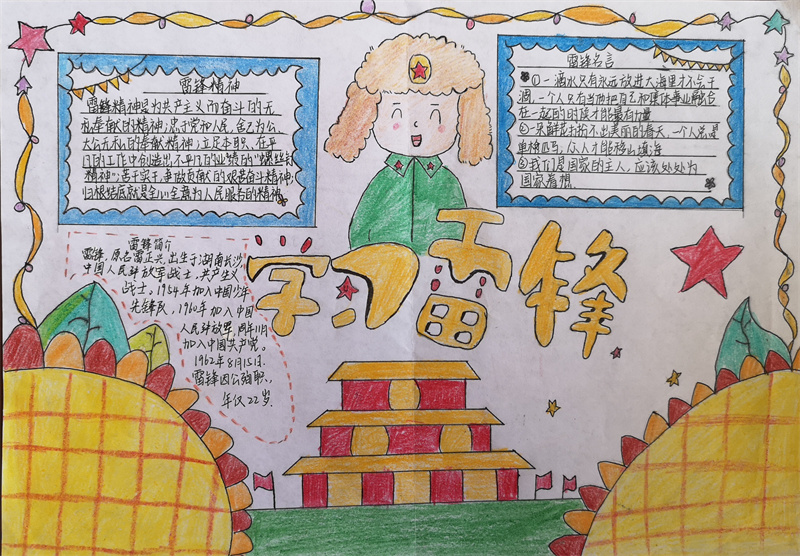 雷锋精神
雷锋精神是为共产主义而奋斗的无
私奉献的精神;忠于党和人民,舍己为公、
大公无私的奉献精神;立足本职、在平
凡的工作中创造出不平凡的业绩的"螺丝钉
精神";苦干实干、争做贡献的艰苦奋斗精神,
归根结底就是全心全意为人民服务的精神
雷锋名言
①一滴水只有永远放进大海里才不会干
涸,一个人只有当他把自己和集体事业融合
在一起的时候才能最有力量
②一朵鲜花打扮不出美丽的春天,一个人总是
单枪匹马,众人才能移山填海
③我们是国家的主人,应该处处为
国家着想
学习雷锋
雷锋简介
雷锋,原名雷正兴,出生于湖南长沙
中国人民解放军战士,共产主义
战士。1954年加入中国少年
先锋队,1960年加入中国
人民解放军,同年11月
加入中国共产党。
1962年8月15日.
雷锋因公殉职,
年仅22岁.